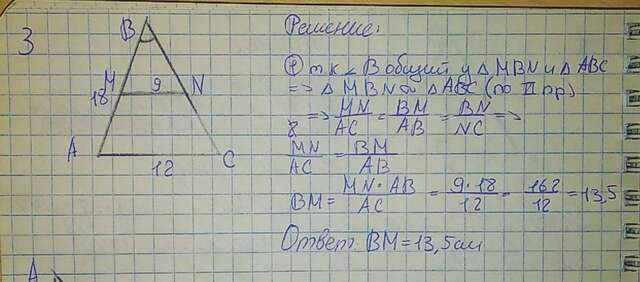 3
Решение:
B
M
9
N
18
A
12
C
1) т.к ∠ B общий у △ MBN и △ ABC
=> △ MBN ∾ △ ABC (по II пр)
=> MN/AC = BM/AB = BN/NC =>
MN/AC = BM/AB
BM = MN·AB/AC = 9·18/12 = 162/12 = 13,5
Ответ BM = 13,5см
A